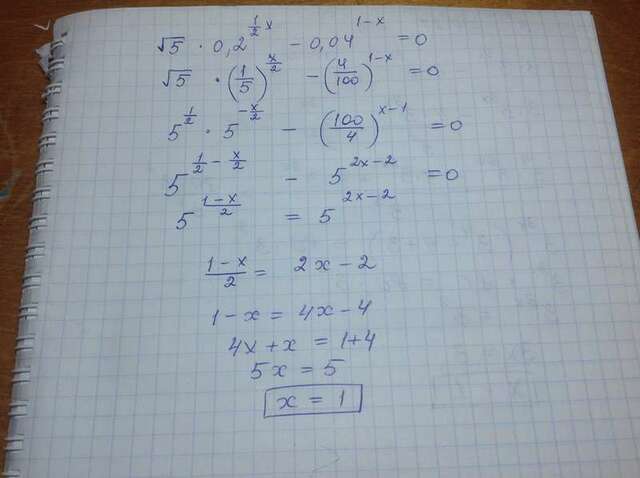 √5 · 0,2^(1/2 x) − 0,04^(1−x) = 0
√5 · (1/5)^(x/2) − (4/100)^(1−x) = 0
5^(1/2) · 5^(−x/2) − (100/4)^(x−1) = 0
5^(1/2 − x/2) − 5^(2x−2) = 0
5^((1−x)/2) = 5^(2x−2)
(1−x)/2 = 2x−2
1−x = 4x−4
4x+x = 1+4
5x = 5
x = 1